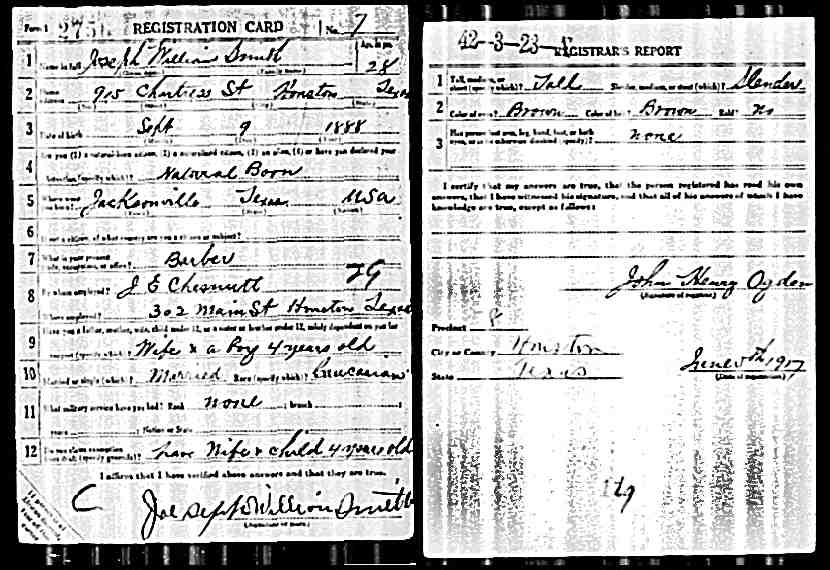 Form 1 275 REGISTRATION CARD No. 7
1 Name in full Joseph William Smith Age, in yrs. 28
2 Home address 915 Chartress St Houston Texas
3 Date of birth Sept 9 1888
4 Are you (1) a natural-born citizen, (2) a naturalized citizen, (3) an alien, (4) or have you declared your
intention (specify which)? Natural Born
5 Where were you born? Jacksonville Texas USA
6 If not a citizen, of what country are you a citizen or subject?
7 What is your present trade, occupation, or office? Barber 29
8 By whom employed? J E Chesnutt
Where employed? 302 Main St Houston Texas
9 Have you a father, mother, wife, child under 12, or a sister or brother under 12, solely dependent on you for
support (specify which)? Wife & a Boy 4 years old
10 Married or single (which)? Married Race (specify which)? Caucasian
11 What military service have you had? Rank none ; branch
years ; Nation or State
12 Do you claim exemption from draft (specify grounds)? have Wife & child 4 years old
I affirm that I have verified above answers and that they are true.
C
Joe Seph William Smith
(Signature or mark)
42-3-23-A REGISTRAR'S REPORT
1 Tall, medium, or short (specify which)? Tall Slender, medium, or stout (which)? Slender
2 Color of eyes? Brown Color of hair? Brown Bald? no
3 Has person lost arm, leg, hand, foot, or both
eyes, or is he otherwise disabled (specify)? none
I certify that my answers are true, that the person registered has read his own
answers, that I have witnessed his signature, and that all of his answers of which I have
knowledge are true, except as follows:
John Henry Ogden
(Signature of registrar)
Precinct 8
City or County Houston
State Texas
June 5th 1917
(Date of registration)